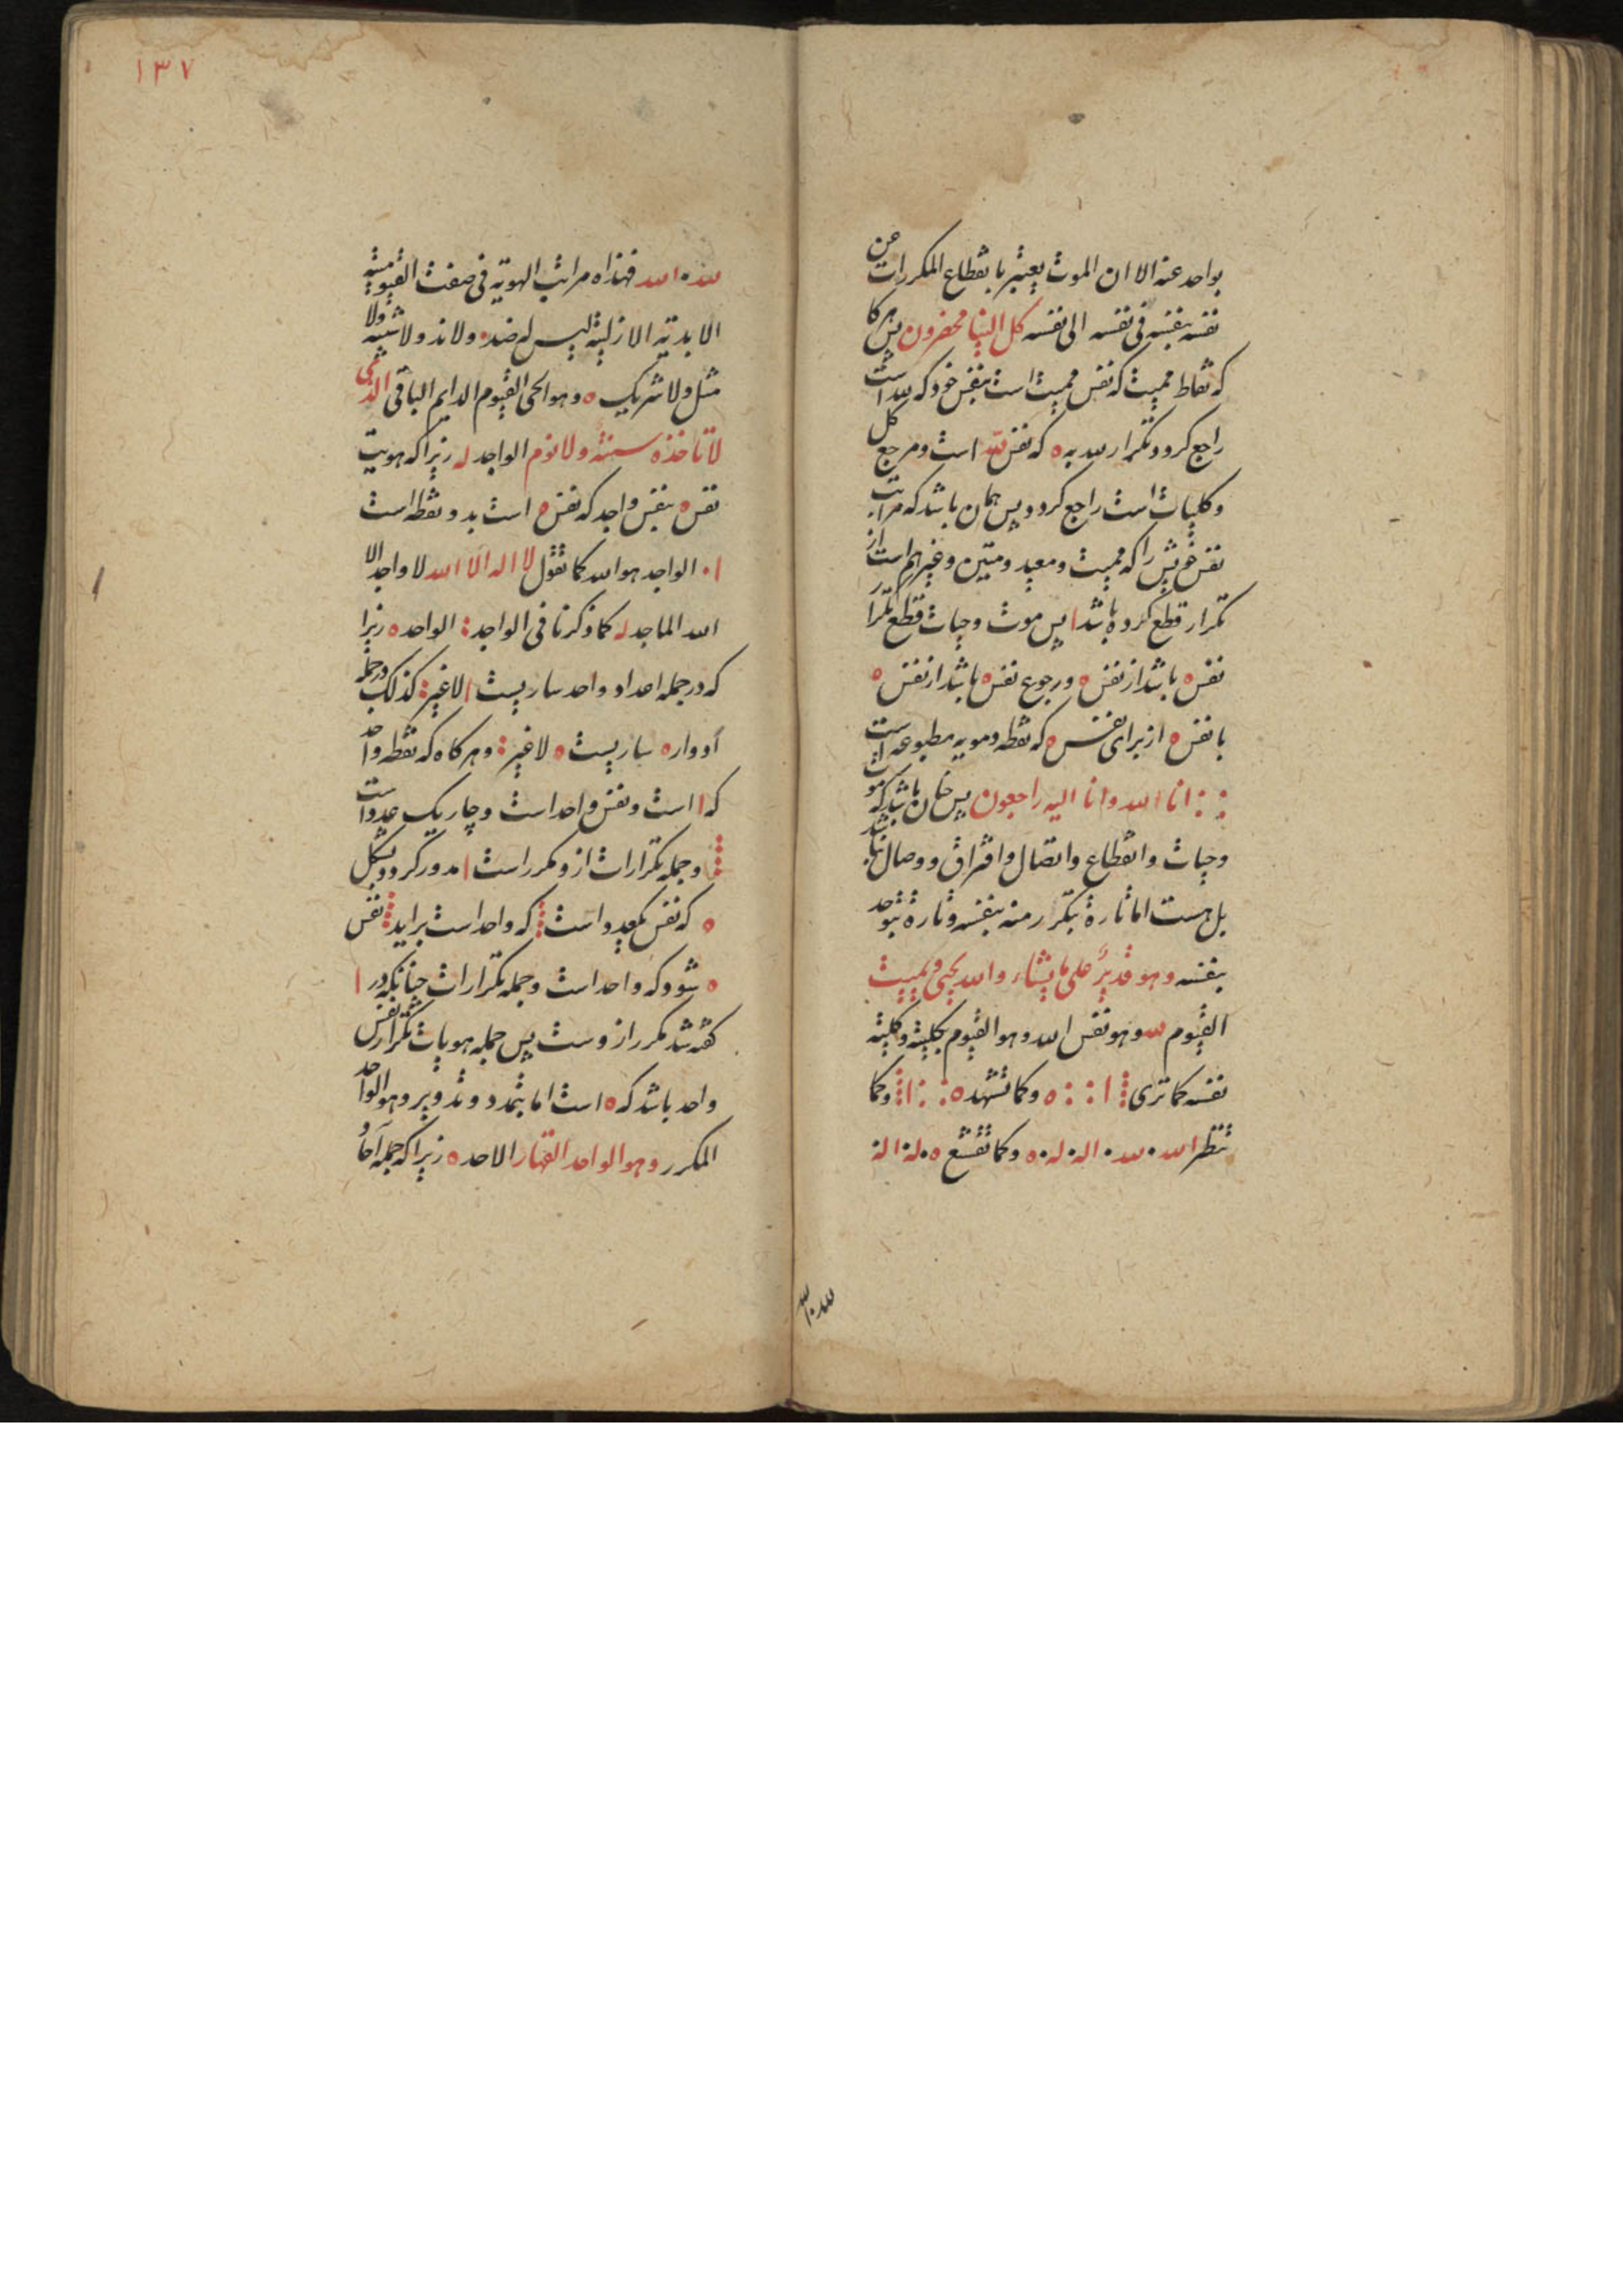 بواحد عنه الا ان الموت یعتبر بانقطاع المکررات عن
نفسه بنفسه فی نفسه الی نفسه کل الینا محضرون پس هر کا
که نقاط ممیت که نفس ممیت است بنفس خود که لله است
راجع کردد و تکرار لله به ه که نفس لله است و مرجع کل
و کلیات است راجع کردد پس همان باشد که مراتب
نفس خویش را که ممیت و معید و متین و غیرهم است از
تکرار قطع کرده باشد ا پس موت و حیات قطع تکرار
نفس ه باشد از نفس ه و رجوع نفس ه باشد از نفس ه
با نفس ه از برای نفس ه که نقطه و مویه مطبوعه است
انا لله وانا الیه راجعون پس چنان باشد که موت
و حیات و انقطاع و اتصال و افتراق و وصال نباشد
بل هست اما تارة بتکرر منه بنفسه و تارة بتوحد
بنفسه وهو قدیر علی ما یشاء والله یحیی و یمیت
القیوم لله وهو نفس الله وهو القیوم بکلیته و کلیته
نفسه کما تری ⁝ ا : : ه و کما تشهد ه : : ا ⁝ و کما
تنظر الله • لله • اله • له • ه و کما تقشع ه • له • اله
لله • الله
۱۳۷
لله • الله فهذاه مراتب الهویه فی صفت القیومیته
الابدیه الازلیة لیس له ضد • ولا ند ولا شبیه ولا
مثل ولا شریک ه وهو الحی القیوم الدایم الباقی الذی
لا تاخذه سنة ولا نوم الواجد له زیرا که هویت
نفس ه بنفس واجد که نفس ه است بدو نقطه است
ا • الواجد هو الله کما نقول لا اله الا الله لا واجد الا
الله الماجد له کما ذکرنا فی الواجد : الواحد ه زیرا
که در جمله اعداد واحد ساریست ا لاغیر : کذلک در جمله
ادوار ه ساریست ه لاغیر : و هرکاه که نقطه واحد
که ا است و نفس واحد است و چار یک عدد است
⁝ و جمله تکرارات ازو مکرر است ا مدور کردد بشکل
ه که نفس معدود است ⁝ که واحد است براید ⁝ نفس
ه شود که واحد است و جمله تکرارات چنانکه در ا
کفته شد مکرر ازوست پس جمله هویات تکرار نفس
واحد باشد که ه است اما بتمدد و تدویر وهو الواحد
المکرر وهو الواحد القهار الاحد ه زیرا که جمله آحاد